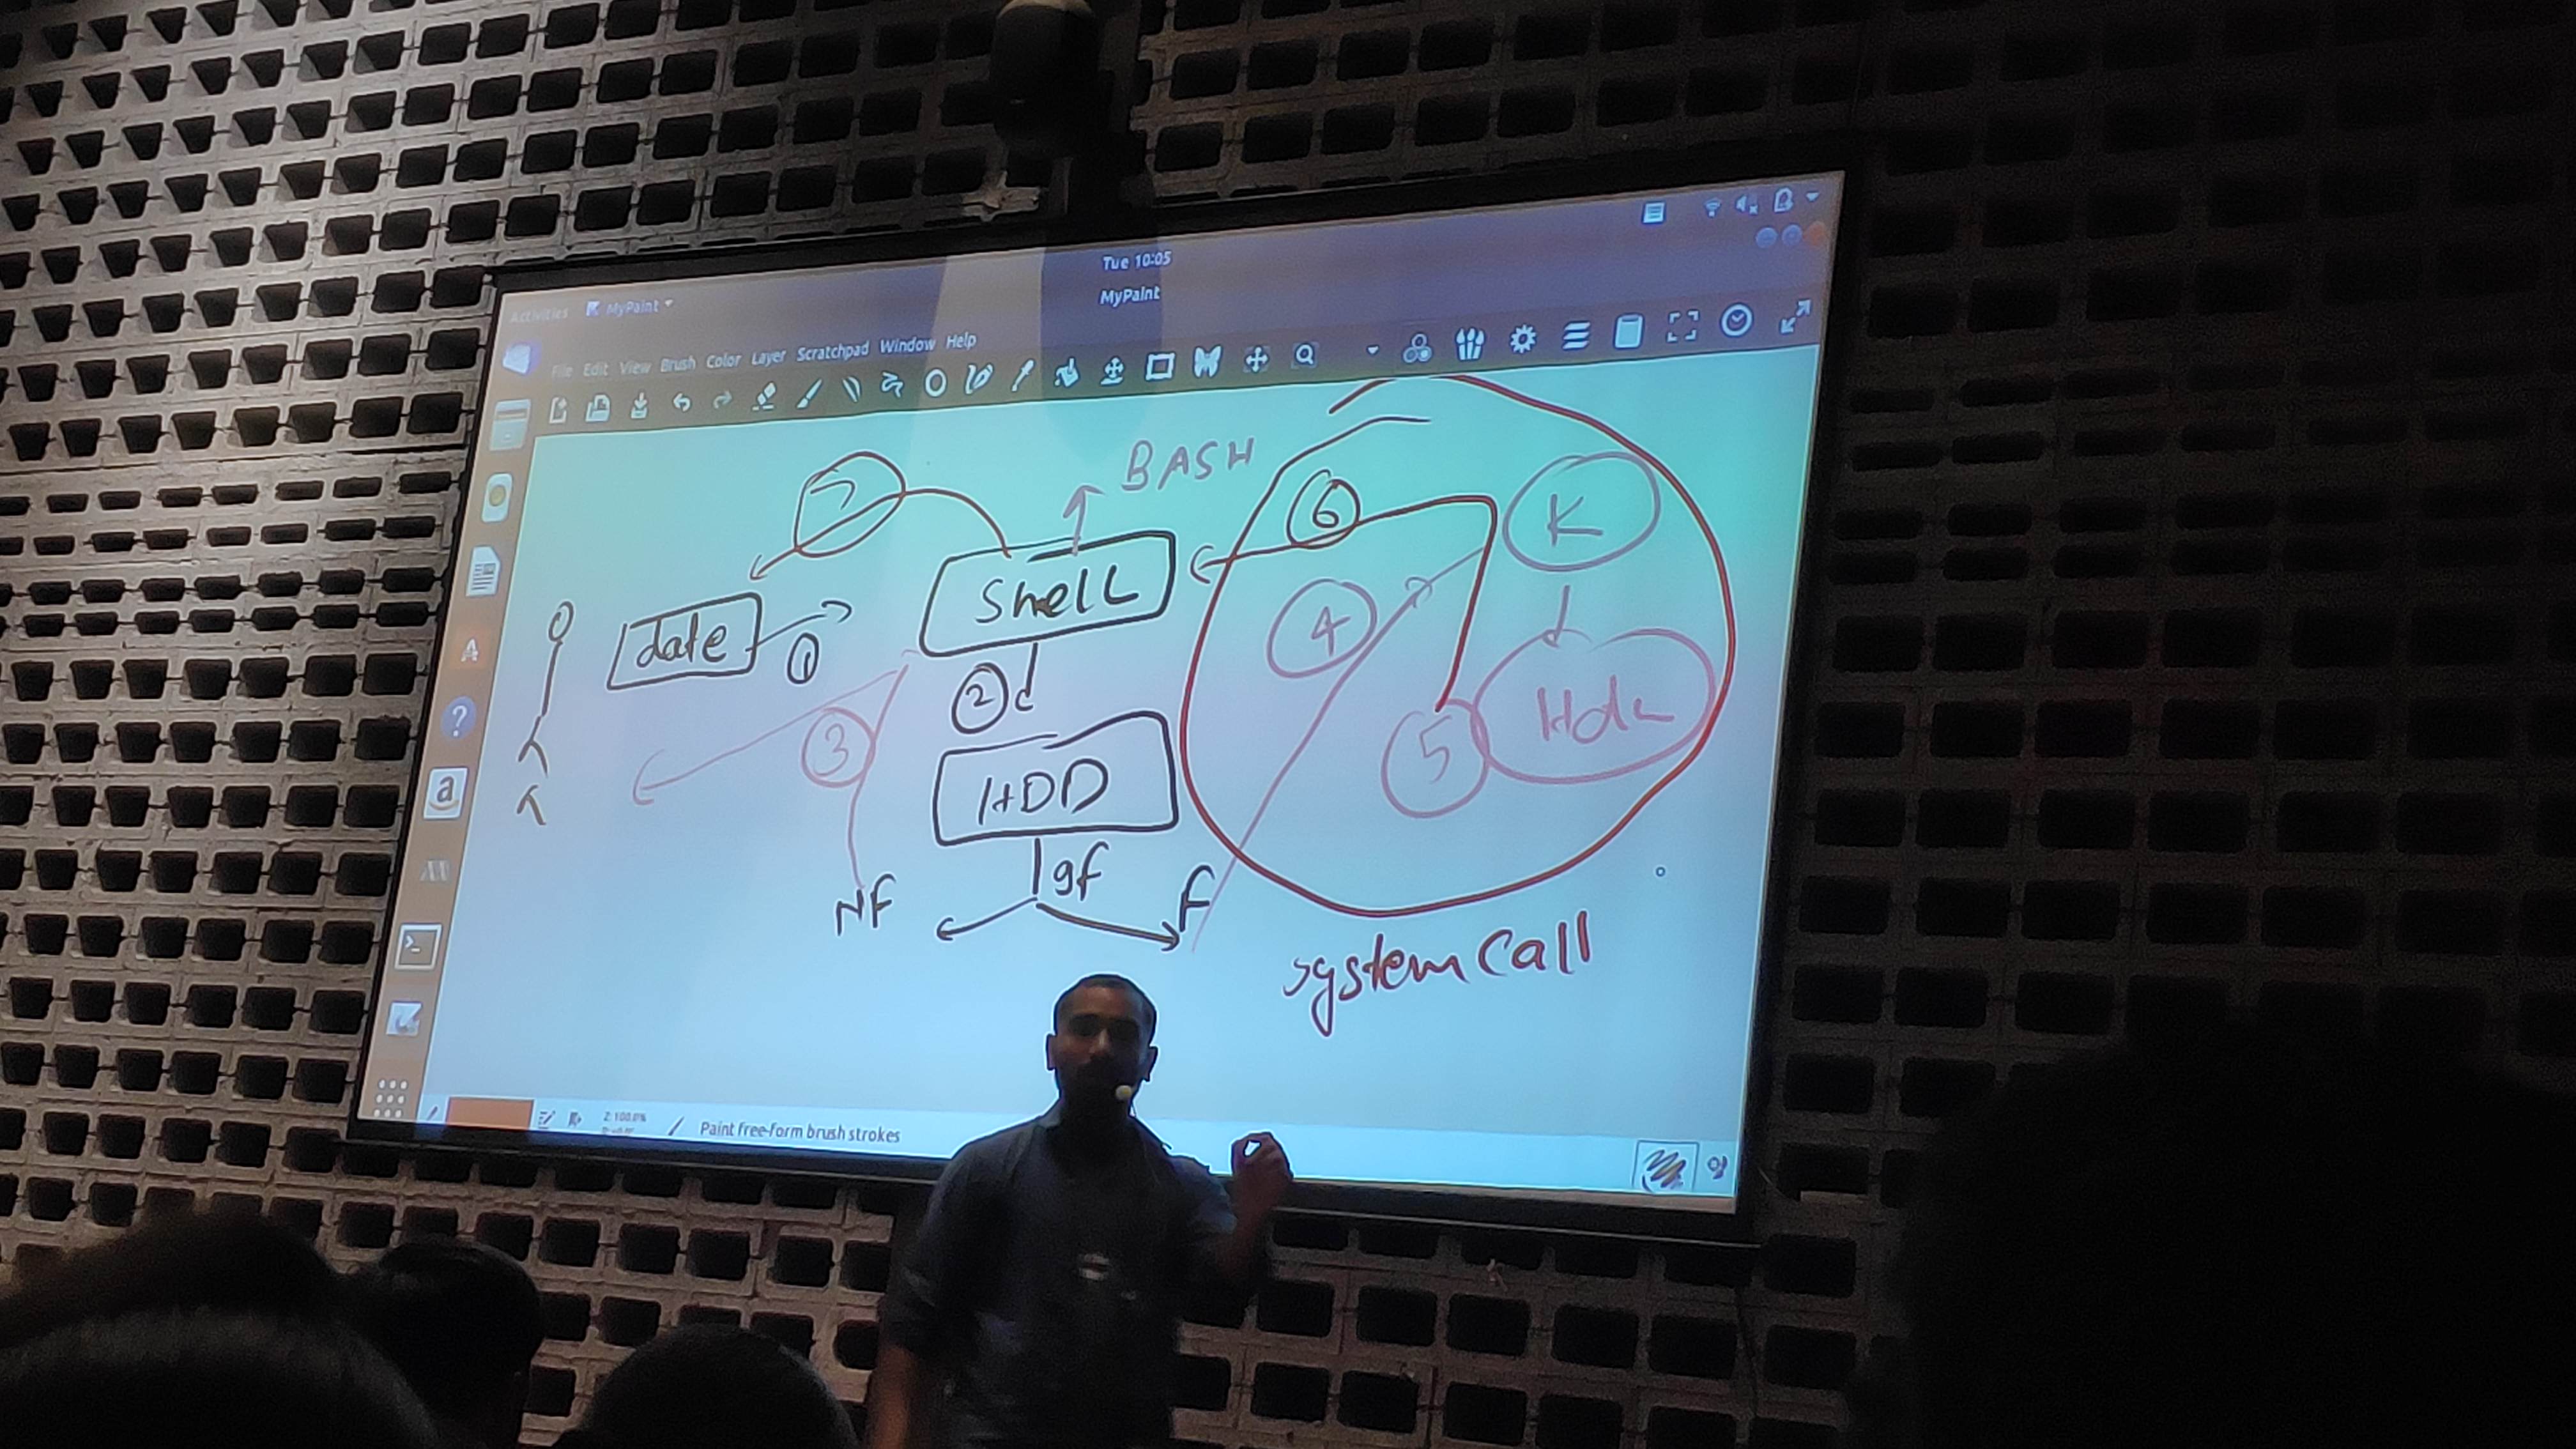 Tue 10:05
Activities MyPaint
MyPaint
File Edit View Brush Color Layer Scratchpad Window Help
BASH
7
6
K
Shell
date
1
4
2
3
5
Hdw
HDD
gf
NF
F
system call
Z: 100.0%
Paint free-form brush strokes